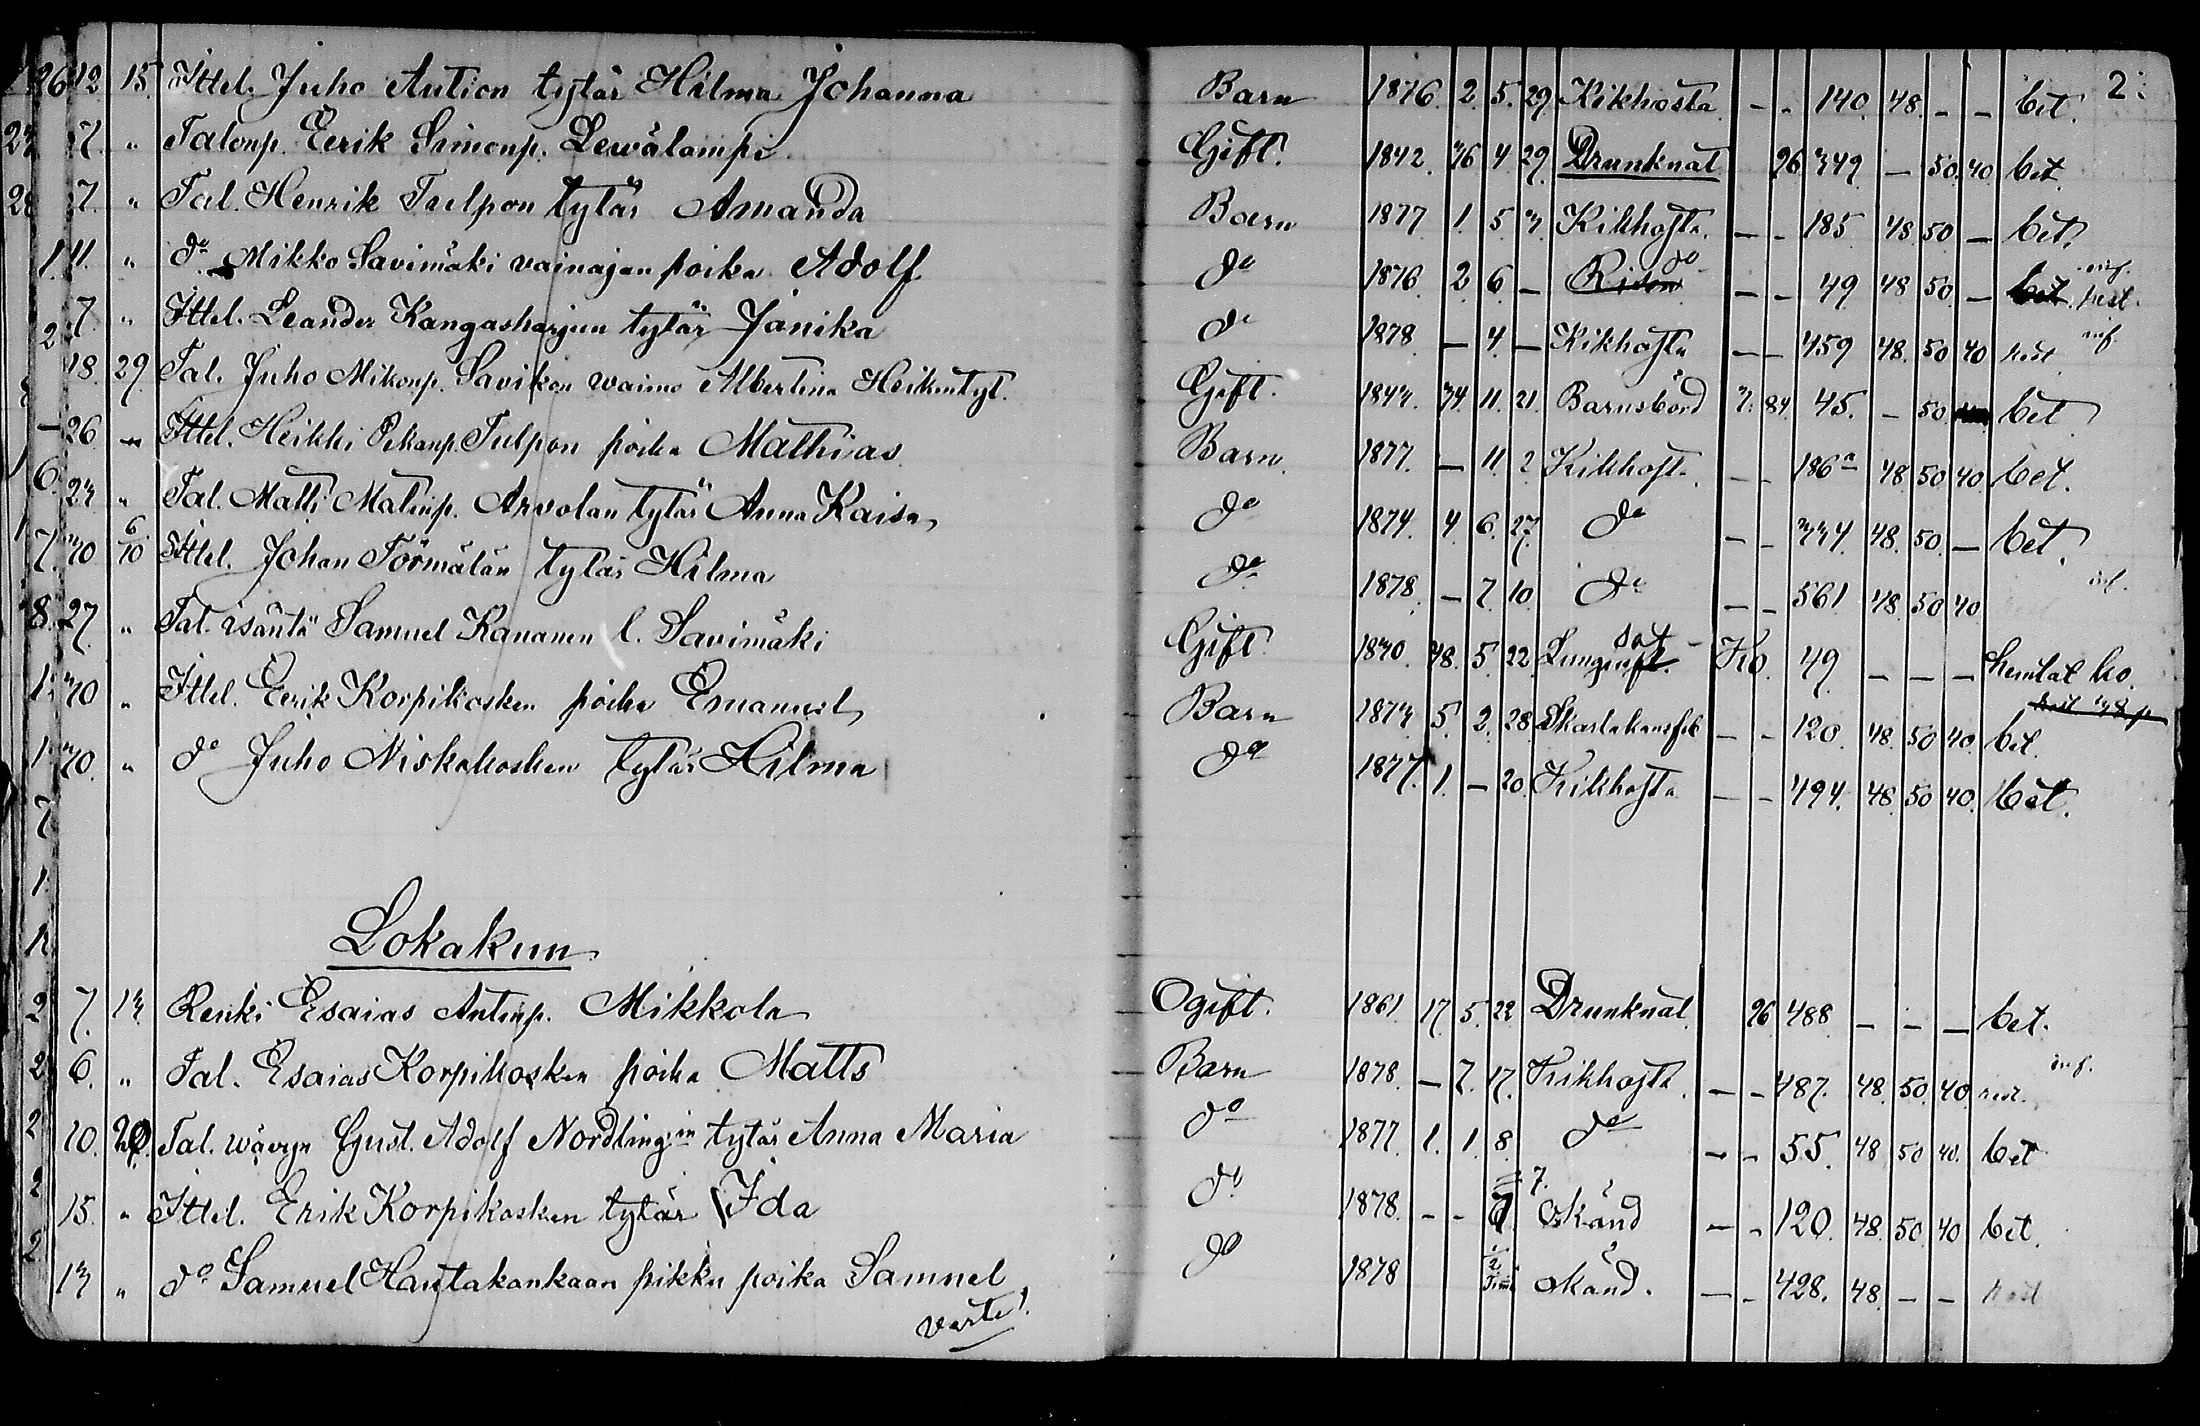 26 12 15 Ittel. Juho Aution tytär Hilma Johanna Barn 1876 2 5 29 Kikhosta - - 140 48 - - bet. 2
7 " Talonp. Eerik Simonp. Lewälampi Gift. 1842 36 4 29 Drunknat 26 349 - 50 40 bet.
7 " Tal. Henrik Tulpon tytär Amanda Barn 1877 1 5 3 Kikhosta - - 185 48 50 - bet.
11 " do Mikko Savimäki vainajan poika Adolf do 1876 2 6 - do - - 49 48 50 - rest.
7 " Ittel. Leander Kangasharjun tytär Janika do 1878 - 4 - Kikhosta - - 459 48 50 40 rest
18 29 Tal. Juho Mikonp. Savikon waimo Albertina Heikintyt. Gift. 1844 34 11 21 Barnsbörd 7. 84 45 - 50 bet
26 " Ittel. Heikki Pekanp. Tulpon poika Mathias Barn 1877 - 11 2 Kikhosta - - 186a 48 50 40 bet.
23 " Tal. Matti Matinp. Arvolan tytär Anna Kaisa do 1874 4 6 27 do - - 334 48 50 - bet.
30 6/10 Ittel. Johan Törmälän tytär Hilma do 1878 - 7 10 do - - 561 48 50 40
27 " Tal. isäntä Samuel Kananen l. Savimäki Gift 1830 48 5 22 Lungsot Ko. 49 - - - hemtat ko.
30 " Ittel. Eerik Korpikosken poika Emanuel Barn 1873 5 2 28 Skarlakansfeb - - 120 48 50 40 bet.
30 " do Juho Niskakosken tytär Hilma do 1877 1 - 20 Kikhosta - - 494 48 50 40 bet.
Lokakuu
7. 13 Renki Esaias Antinp. Mikkola Ogift. 1861 17 5 22 Drunknat 26 488 - - - bet.
6. " Tal. Esaias Korpikosken poika Matts Barn 1878 - 7 17 Kikhosta - - 487 48 50 40 rest.
10. 20 Tal. wävyn Gust. Adolf Nordlingin tytär Anna Maria do 1877 1 1 8 do - - 55 48 50 40 bet
15. " Ittel. Erik Korpikosken tytär Ida do 1878 - - 7. okänd - - 120 48 50 40 bet.
13 " do Samuel Hautakankaan pikku poika Samuel do 1878 1/2 Tim okänd. - - 428. 48 - - rest
verte!